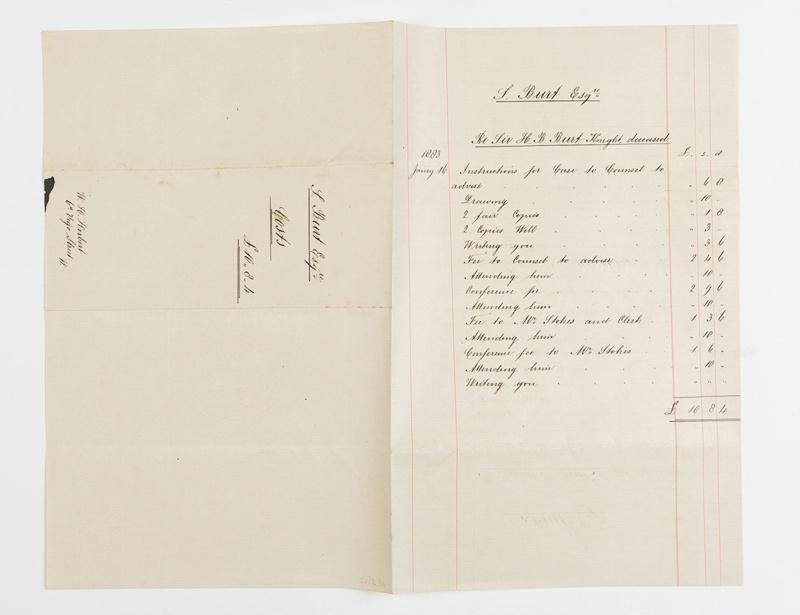 S. Burt Esqre
Re Sir H. B. Burt Knight deceased
1883 £ . s . d
Jany 16 Instructions for Case to Counsel to
advise . . . . . . " 6 8
Drawing . . . . . . " 10 "
2 fair Copies . . . . . " 1 8
2 Copies Will . . . . . " 3 "
Writing you . . . . . " 3 6
Fee to Counsel to advise . . 2 4 6
Attending him . . . . " 10 "
Conference fee . . . . . 2 9 6
Attending him . . . . " 10 "
Fee to Mr Stokes and Clerk . 1 3 6
Attending him . . . . " 10 "
Conference fee to Mr Stokes . 1 6 "
Attending him . . . . " 10 "
Writing you . . . . . " " "
£ 10 8 4
S. Burt Esqre
Costs
£10.8.4
W. H. Herbert